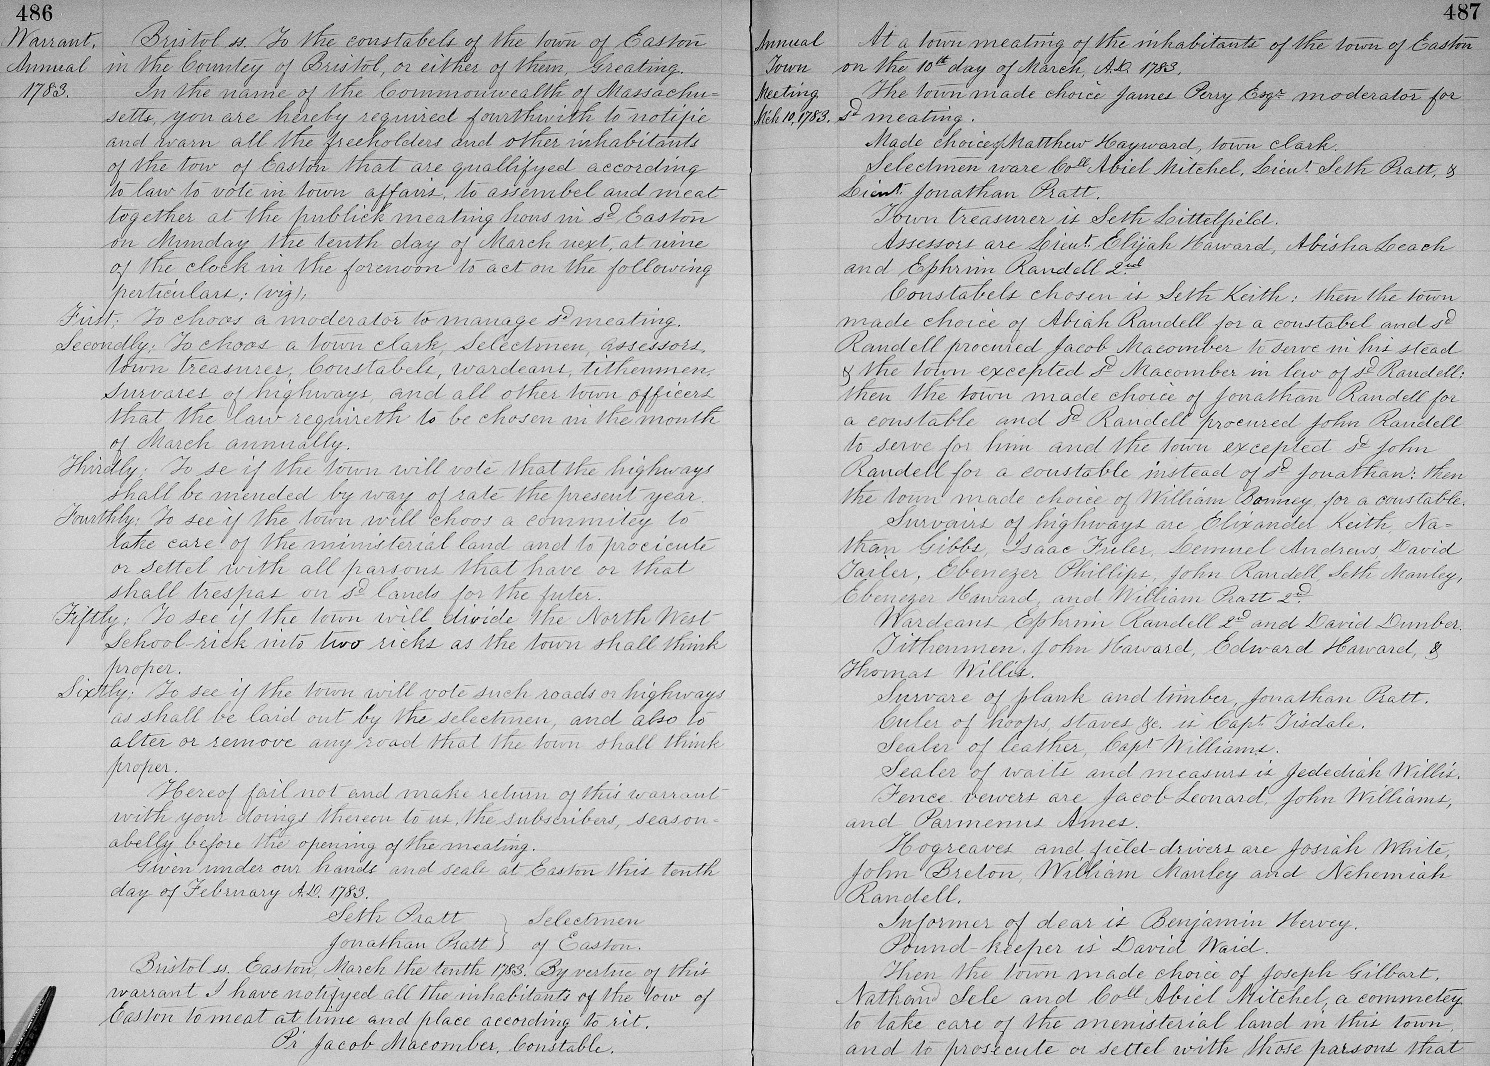 486
Warrant.
Annual
1783.
Bristol ss. To the constabels of the town of Easton
in the Countey of Bristol, or either of them, Greating.
In the name of the Commonwealth of Massachu=
setts, you are hereby required fourthwith to notifie
and warn all the freeholders and other inhabitants
of the tow of Easton that are quallifyed according
to law to vote in town affairs, to assembel and meat
together at the publick meating hous in sd Easton
on Munday the tenth day of March next, at nine
of the clock in the forenoon to act on the following
perticulars; (viz);
First; To choos a moderator to manage sd meating.
Secondly; To choos a town clark, selectmen, assessors,
town treasurer, Constabels, wardeans, tithenmen,
survares of highways, and all other town officers
that the law requireth to be chosen in the month
of March annually.
Thirdly; To se if the town will vote that the highways
shall be mended by way of rate the present year.
Fourthly; To see if the town will choos a commitey to
take care of the ministerial land and to procicute
or settel with all parsons that have or that
shall trespas on sd lands for the futer.
Fiftly; To see if the town will divide the North West
School-rick into two ricks as the town shall think
proper.
Sixtly; To see if the town will vote such roads or highways
as shall be laid out by the selectmen, and also to
alter or remove any road that the town shall think
proper.
Hereof fail not and make return of this warrant
with your doings thereon to us, the subscribers, season-
abelly before the opening of the meating.
Given under our hands and seals at Easton this tenth
day of February A.D. 1783.
Seth Pratt } Selectmen
Jonathan Pratt } of Easton.
Bristol ss. Easton, March the tenth 1783. By vertue of this
warrant I have notifyed all the inhabitants of the tow of
Easton to meat at time and place according to rit.
Pr Jacob Macomber, Constable.
487
Annual
Town
Meeting
Mch 10, 1783.
At a town meating of the inhabitants of the town of Easton
on the 10th day of March, A.D. 1783.
The town made choice James Perry Esqr moderator for
sd meating.
Made choice of Matthew Hayward, town clark.
Selectmen ware Coll Abiel Mitchel, Lieut Seth Pratt, &
Lieut Jonathan Pratt.
Town treasurer is Seth Littelfield.
Assessors are Lieut Elijah Haward, Abisha Leach
and Ephrim Randell 2nd
Constabels chosen is Seth Keith; then the town
made choice of Abiah Randell for a constabel and sd
Randell procured Jacob Macomber to serve in his stead
& the town excepted sd Macomber in lew of sd Randell;
then the town made choice of Jonathan Randell for
a constable and sd Randell procured John Randell
to serve for him and the town excepted sd John
Randell for a constable instead of sd Jonathan: then
the town made choice of William Bonney for a constable.
Survairs of highways are Elixander Keith, Na=
than Gibbs, Isaac Fuler, Lemuel Andrews, David
Tailer, Ebenezer Phillips, John Randell, Seth Manley,
Ebenezer Haward, and William Pratt 2d
Wardeans, Ephrim Randell 2d and David Dunber.
Tithenmen, John Haward, Edward Haward, &
Thomas Willis.
Survare of plank and timber, Jonathan Pratt.
Culer of hoops, staves, &c. is Capt Tisdale.
Sealer of leather, Capt Williams.
Sealer of waits and measurs is Jedediah Willis.
Fence vewers are Jacob Leonard, John Williams,
and Parmenus Ames.
Hogreaves and field-drivers are Josiah White,
John Breton, William Manley and Nehemiah
Randell.
Informer of dear is Benjamin Hervey.
Pound-keeper is David Waid.
Then the town made choice of Joseph Gilbart,
Nathan Sele and Coll Abiel Mitchel, a commetey
to take care of the menisterial land in this town,
and to prosecute or settel with those parsons that